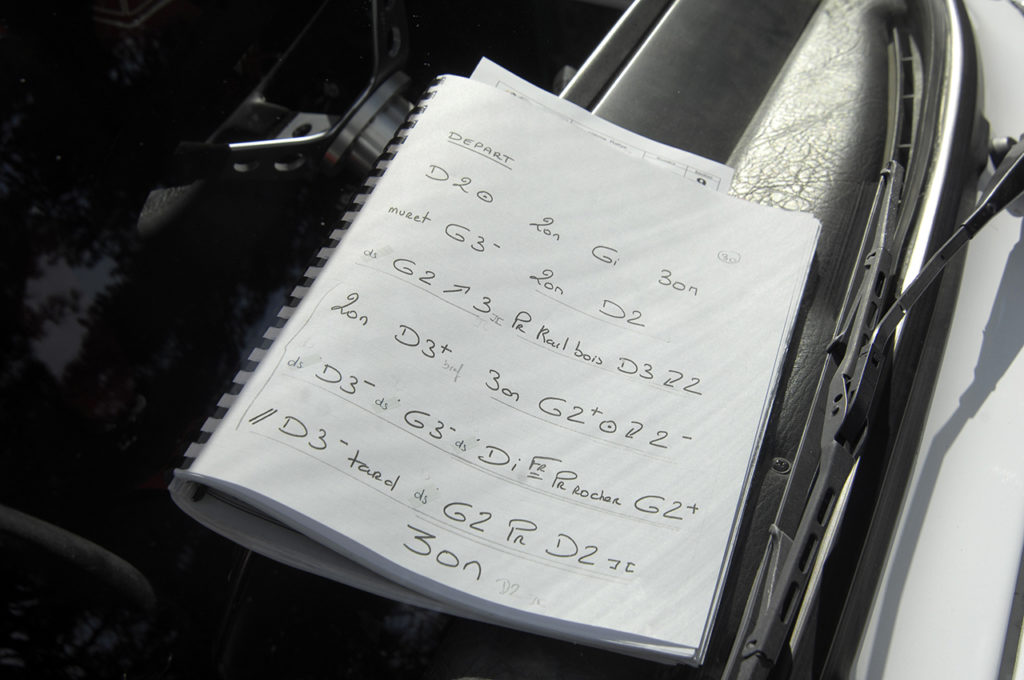 DEPART
D2⊙ 2on Gi 3on
muret G3- 2on D2
ds G2 ↗ 3 JC PR Rail bois D3 2
2on D3+ 3on G2+ ⊙ 2-
ds D3- ds G3- ds Di FR PR rocher G2+
// D3- tard ds G2 PR D2 JC
3on D2